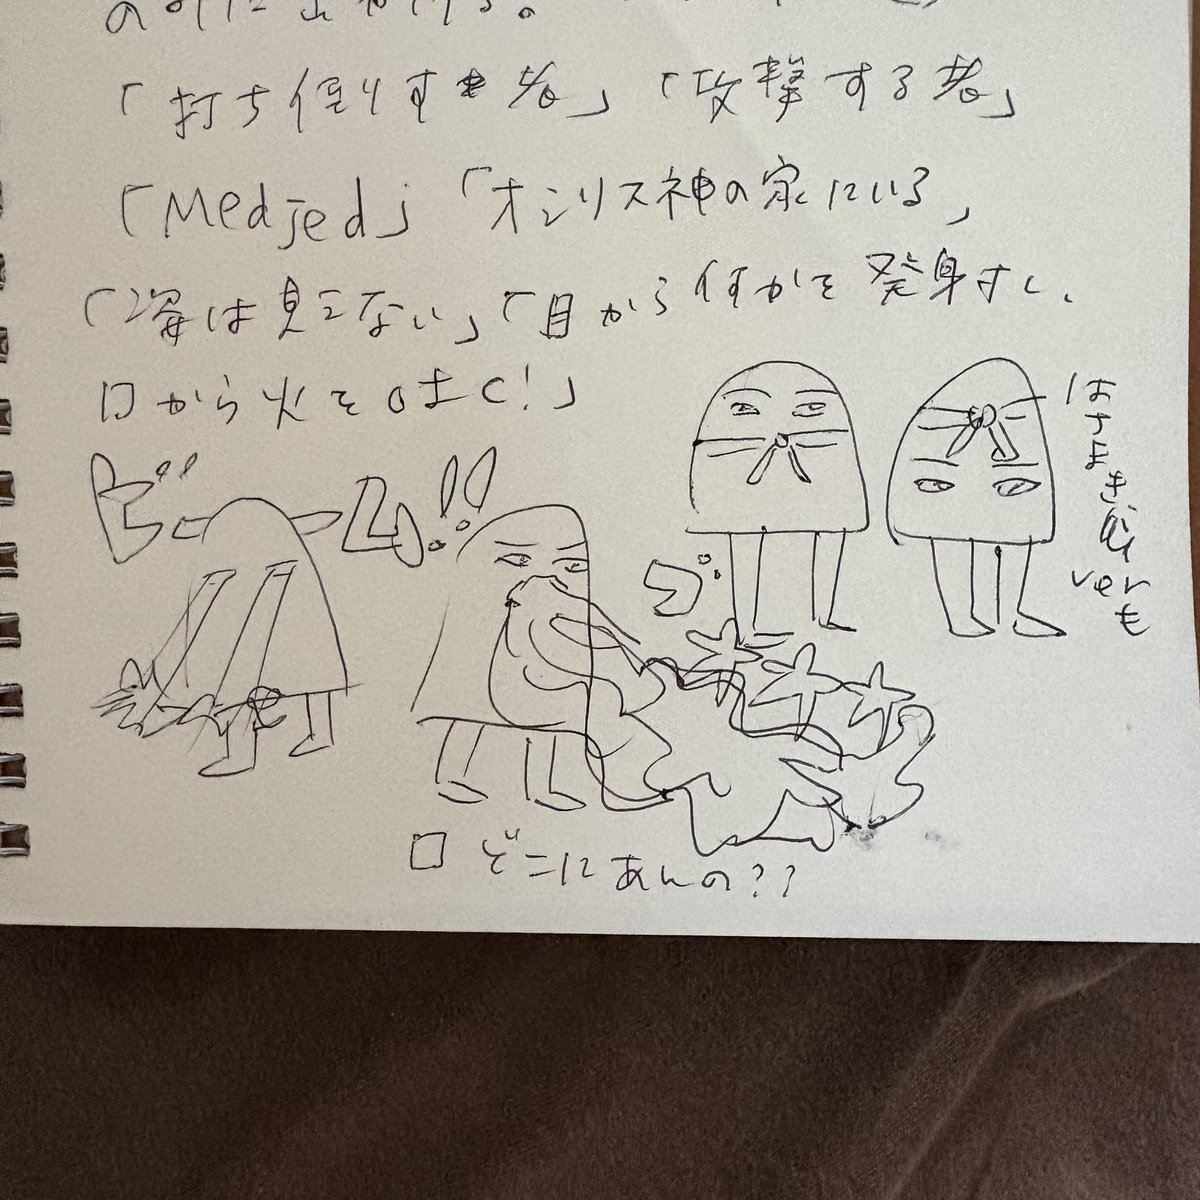 「打ち倒す者」「攻撃する者」
「Medjed」「オシリス神の家にいる」
「姿は見えない」「目から何かを発射すし、
口から火をはく！」
ビーム!!
ゴオオオ
はちまき
verも
口どこにあんの??